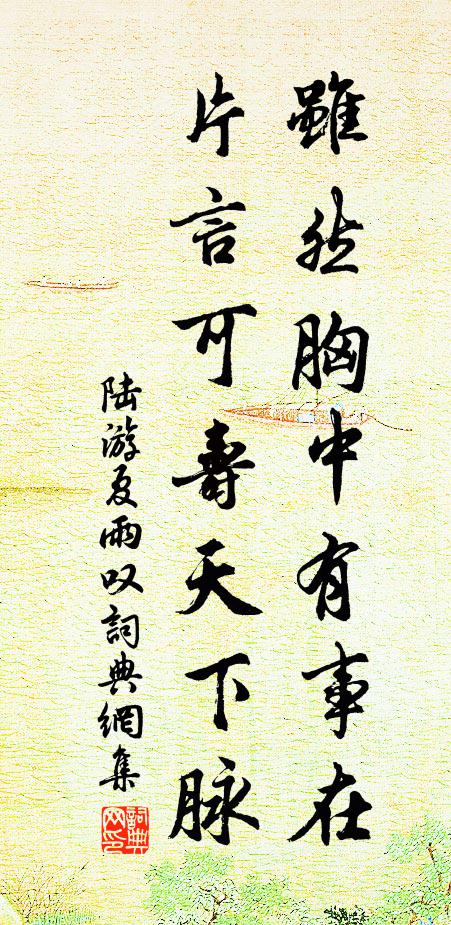 雖然胸中有事在
片言可壽天下脉
陆游夏雨叹詞典網集
詞典网印